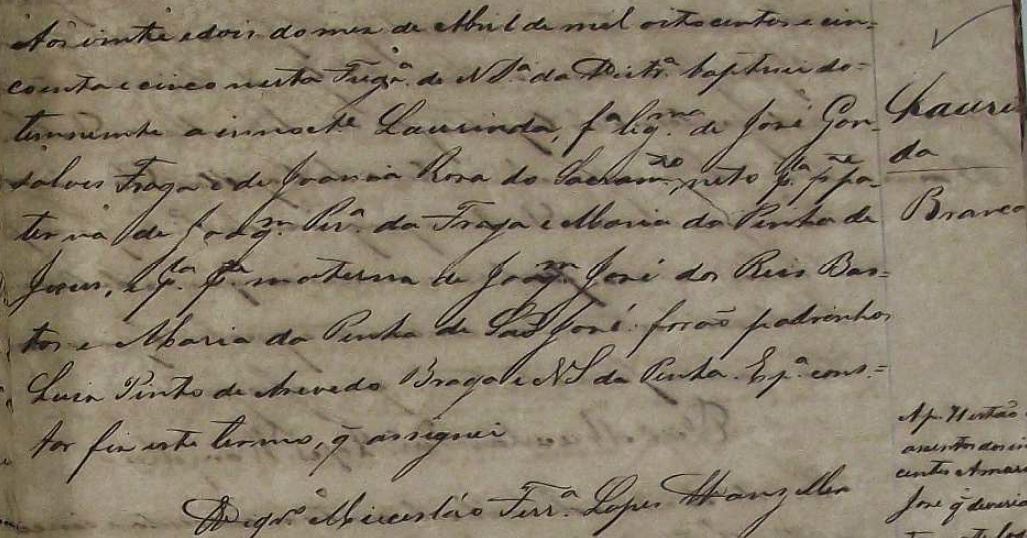 Aos vinte e dois do mez de Abril de mil oitocentos e cin-
coenta e cinco nesta Freg.ª de N S.ª da Victr.ª baptisei so-
lemnemente a innocte Laurinda, f.ª lig.ma de José Gon-
salves Fraga e de Joanna Rosa do Sacram.to, neto p.la p.te pa-
terna de Joaq.m Per.ª da Fraga e Maria da Penha de
Jesus, e p.la p.te materna de Joaq.m José dos Reis Bas-
tos e Maria da Penha de São José. forão padrinhos
Luiz Pinto de Asevedo Braga e N S da Penha. E p.ª cons-
tar fiz este termo, q assignei
Vigr.º Miceslão Ferr.ª Lopes Wanzeller
Lauri
da
Branca
Ap. 71 estão
assentos dos in
centes Amar
José q deveria